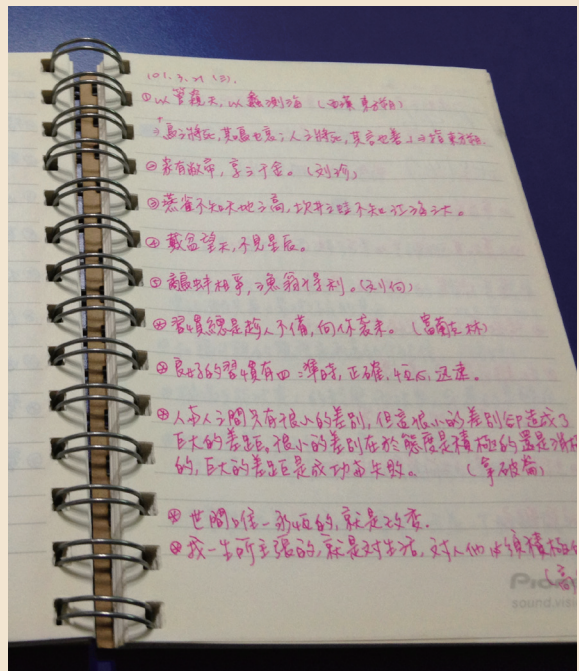 101.3.21 (三).
①以管窺天,以蠡測海 (西漢 東方朔)
鳥之將死,其鳴也哀;人之將死,其言也善
②家有敝帚,享之千金。(刘珍)
③燕雀不知天地之高,坎井之蛙不知江海之大。
④戴盆望天,不見星辰。
⑤鷸蚌相爭,漁翁得利。(刘向)
習慣總是趁人不備,向你襲來。(富蘭克林)
良好的習慣有四:準時,正確,恒心,迅速。
人与人之間只有很小的差別,但這很小的差別卻造成了
巨大的差距。很小的差別在於態度是積極的還是消極
的,巨大的差距是成功与失敗。(拿破崙)
世間唯一永恒的,就是改變.
我一生所主張的,就是对生活,对人們必須積極
(高
Pio
sound.vis